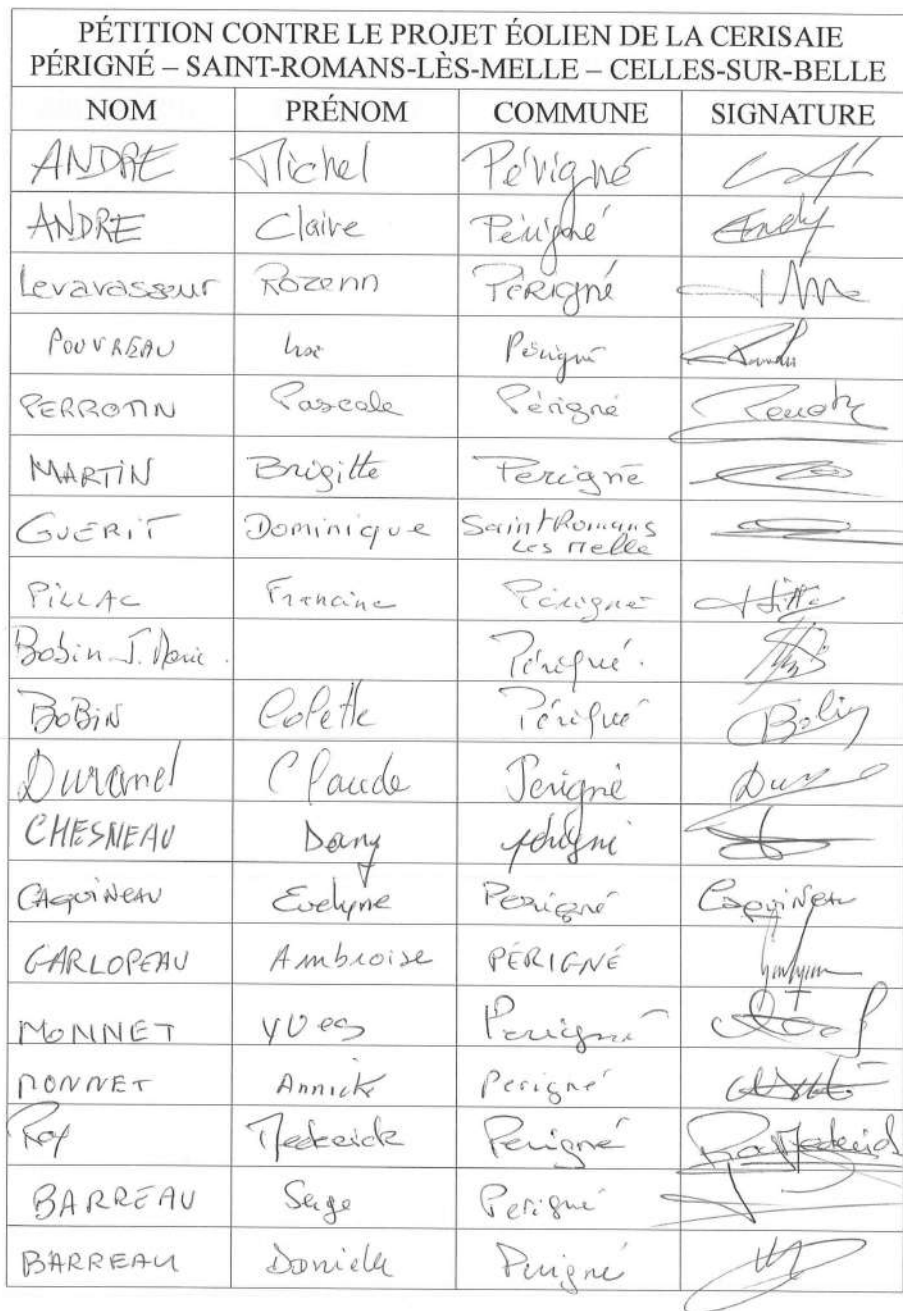 PÉTITION CONTRE LE PROJET ÉOLIEN DE LA CERISAIE
PÉRIGNÉ – SAINT-ROMANS-LÈS-MELLE – CELLES-SUR-BELLE
NOM PRÉNOM COMMUNE SIGNATURE
ANDRE Michel Périgné
ANDRE Claire Périgné
Levavasseur Rozenn PÉRIGNÉ
POUVREAU Périgné
PERROTIN Pascale Périgné
MARTIN Brigitte Perigné
GUERIT Dominique Saint Romans
Les Melle
PILLAC Francine Périgné
Bobin J. Marie. Périgné.
BOBIN Colette Périgné Bobin
Durand Claude Perigné
CHESNEAU Dany
CAQUINEAU Evelyne Perigné Caquineau
GARLOPEAU Ambroise PÉRIGNÉ
MONNET YVES Perigné
MONNET Annick Perigné
Roy Perigné
BARREAU Serge Perigné
BARREAU Perigné